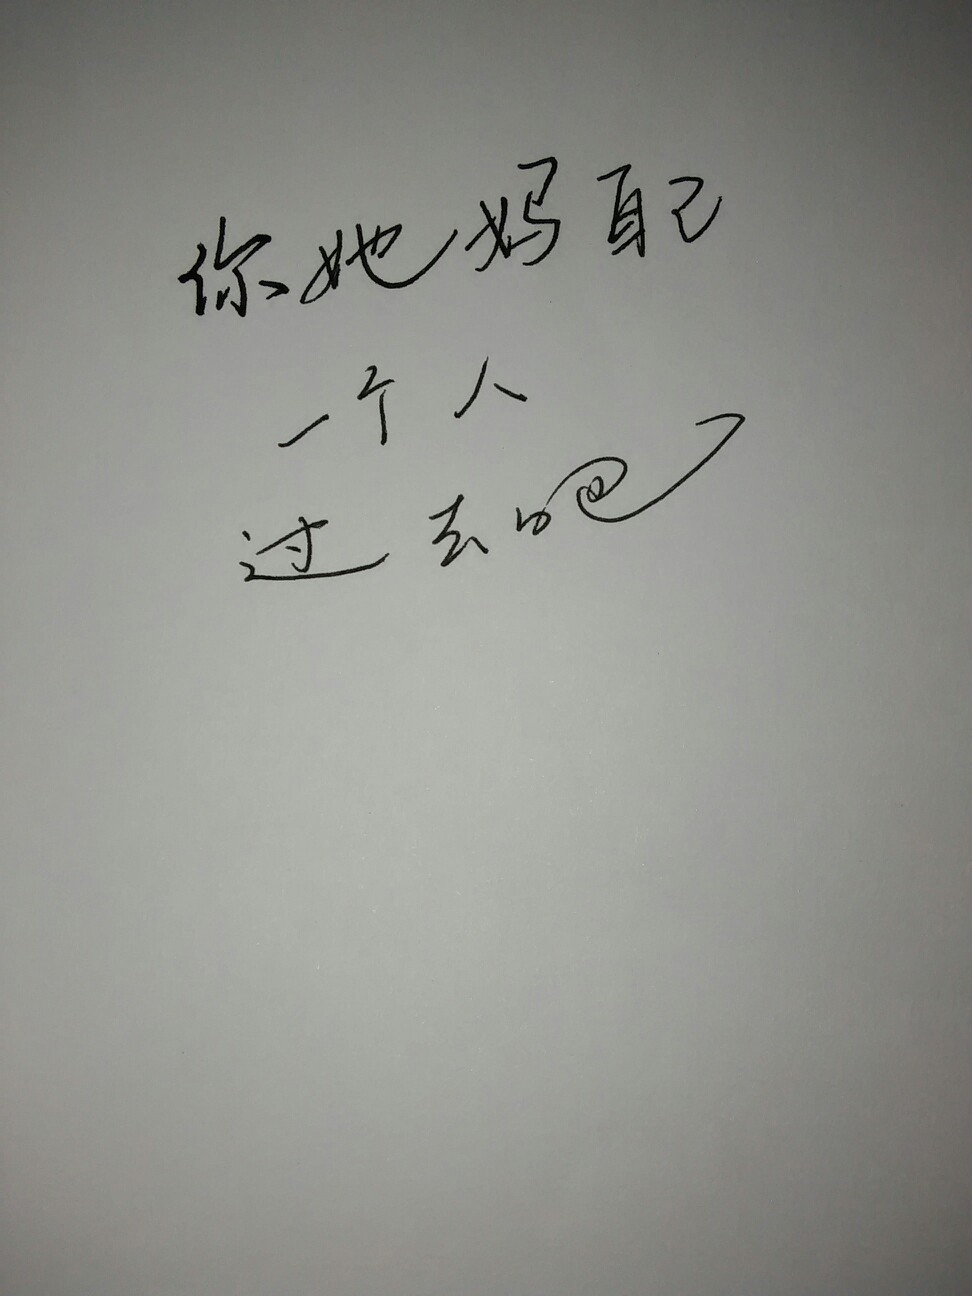 你她妈自己
一个人
过去吧